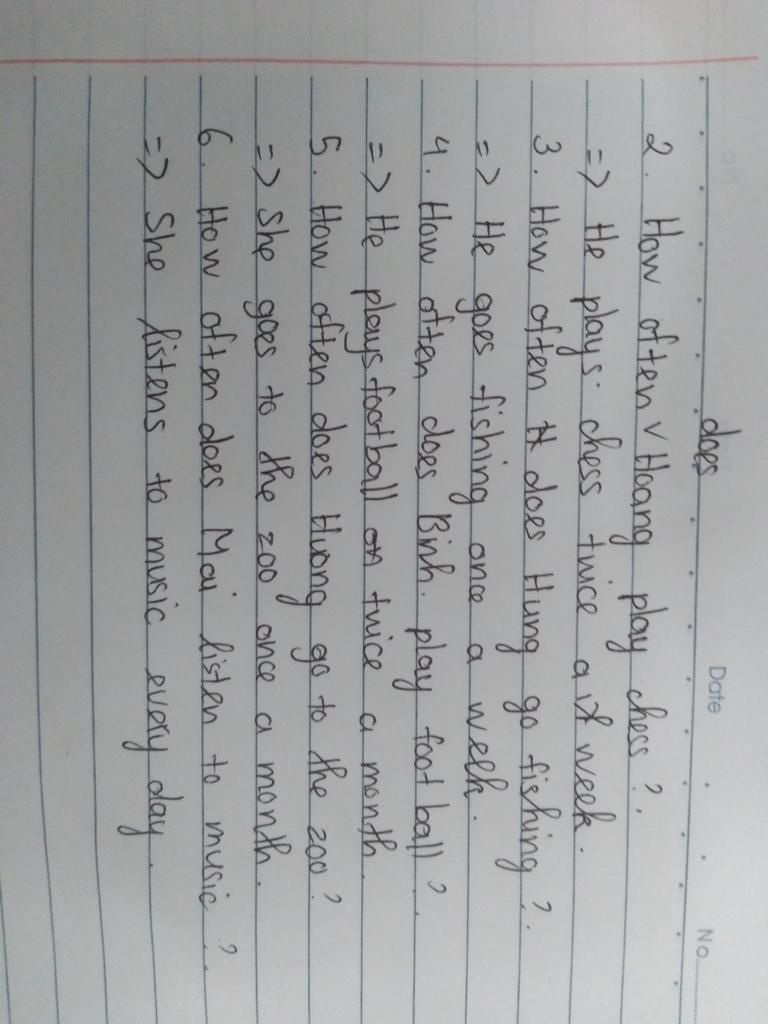 Date
No
does
2. How often v Hoang play chess?.
=> He plays chess twice a week.
3. How often does Hung go fishing?.
=> He goes fishing once a week.
4. How often does Binh play football?.
=> He plays football twice a month.
5. How often does Huong go to the zoo?
=> She goes to the zoo once a month.
6. How often does Mai listen to music?.
=> She listens to music every day.